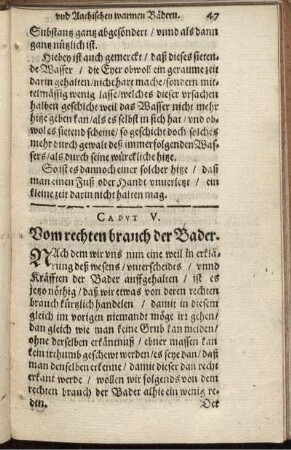 vnd Aachischen warmen Bädern. 47
Substantz gantz abgesöndert / vnnd als dann
gantz nützlich ist.
Hiebey ist auch gemerckt / daß dieses sieten-
de Wasser / die Eyer obwoll ein geraume zeit
darin gehalten / nicht hart mache / sondern mit-
telmässig wenig lasse / welches dieser vrsachen
halben geschicht weil das Wasser nicht mehr
hitze geben kan / als es selbst in sich hat / vnd ob-
wol es sietend scheine / so geschicht doch solches
mehr durch gewalt deß immerfolgenden Was-
sers / als durch seine würckliche hitze.
So ist es dannoch einer solcher hitze / daß
man einen Fuß oder Handt vnuerletzt / ein
kleine zeit darin nicht halten mag.
CAPVT V.
Vom rechten brauch der Bäder.
NAch dem wir vns nun eine weil in erklä-
rung deß wesens / vnterscheides / vnnd
Kräfften der Bäder auffgehalten / ist es
jetzo nöthig / daß wir etwas von deren rechten
brauch kürtzlich handelen / damit in diesem
gleich im vorigen niemandt möge irr gehen /
dan gleich wie man keine Grub kan meiden /
ohne derselben erkäntnuß / ebner massen kan
kein irthumb geschewt werden / es seye dan / daß
man denselben erkenne / damit dieser dan recht
erkant werde / wollen wir folgends von dem
rechten brauch der Bäder alhie ein wenig re-
den. Der